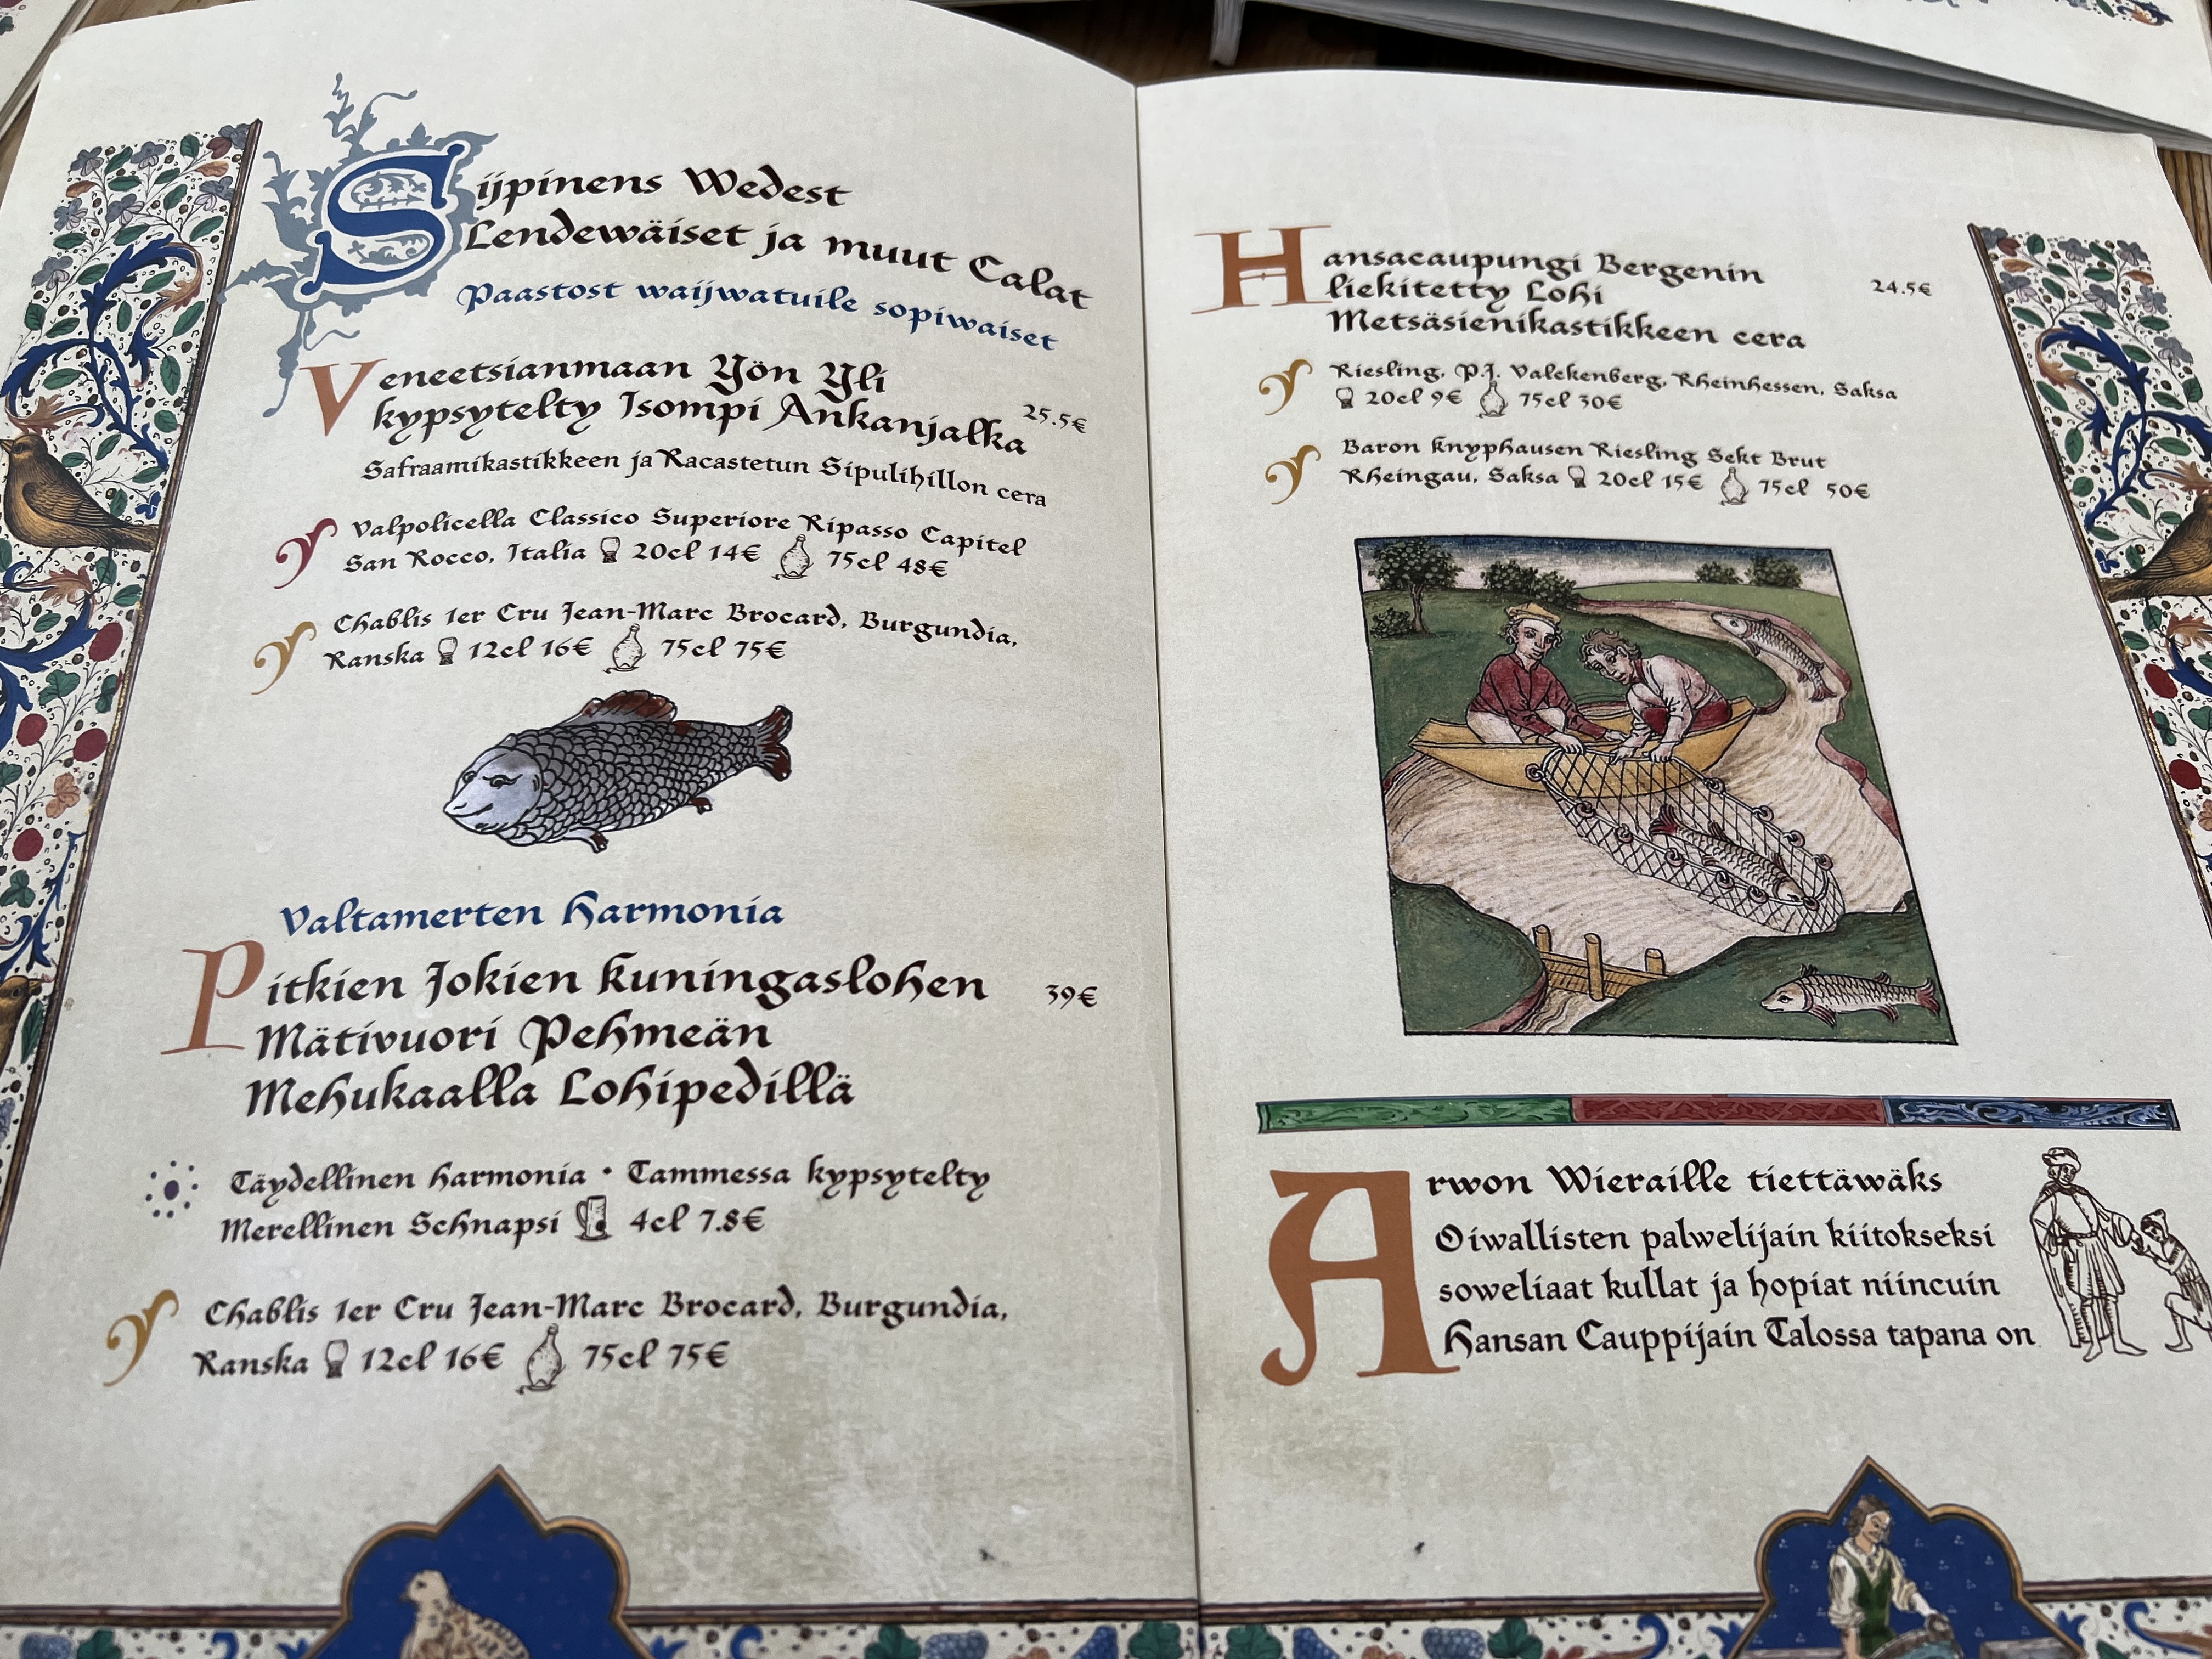 Sijpinens Wedest
Lendewäiset ja muut Calat
Paastost waijwatuile sopiwaiset
Veneetsianmaan Yön Yli
kypsytelty Isompi Ankanjalka 25.5€
Safraamikastikkeen ja Racastetun Sipulihillon cera
Valpolicella Classico Superiore Ripasso Capitel
San Rocco, Italia 20cl 14€ 75cl 48€
Chablis 1er Cru Jean-Marc Brocard, Burgundia,
Ranska 12cl 16€ 75cl 75€
Valtamerten Harmonia
Pitkien Jokien Kuningaslohen 39€
Mätivuori Pehmeän
Mehukaalla Lohipedillä
Täydellinen Harmonia • Tammessa kypsytelty
Merellinen Schnapsi 4cl 7.8€
Chablis 1er Cru Jean-Marc Brocard, Burgundia,
Ranska 12cl 16€ 75cl 75€
Hansacaupungi Bergenin
liekitetty Lohi 24.5€
Metsäsienikastikkeen cera
Riesling, P.J. Valckenberg, Rheinhessen, Saksa
20cl 9€ 75cl 30€
Baron Knyphausen Riesling Sekt Brut
Rheingau, Saksa 20cl 15€ 75cl 50€
Arwon Wieraille tiettäwäks
Oiwallisten palwelijain kiitokseksi
soweliaat kullat ja hopiat niincuin
Hansan Cauppijain Talossa tapana on